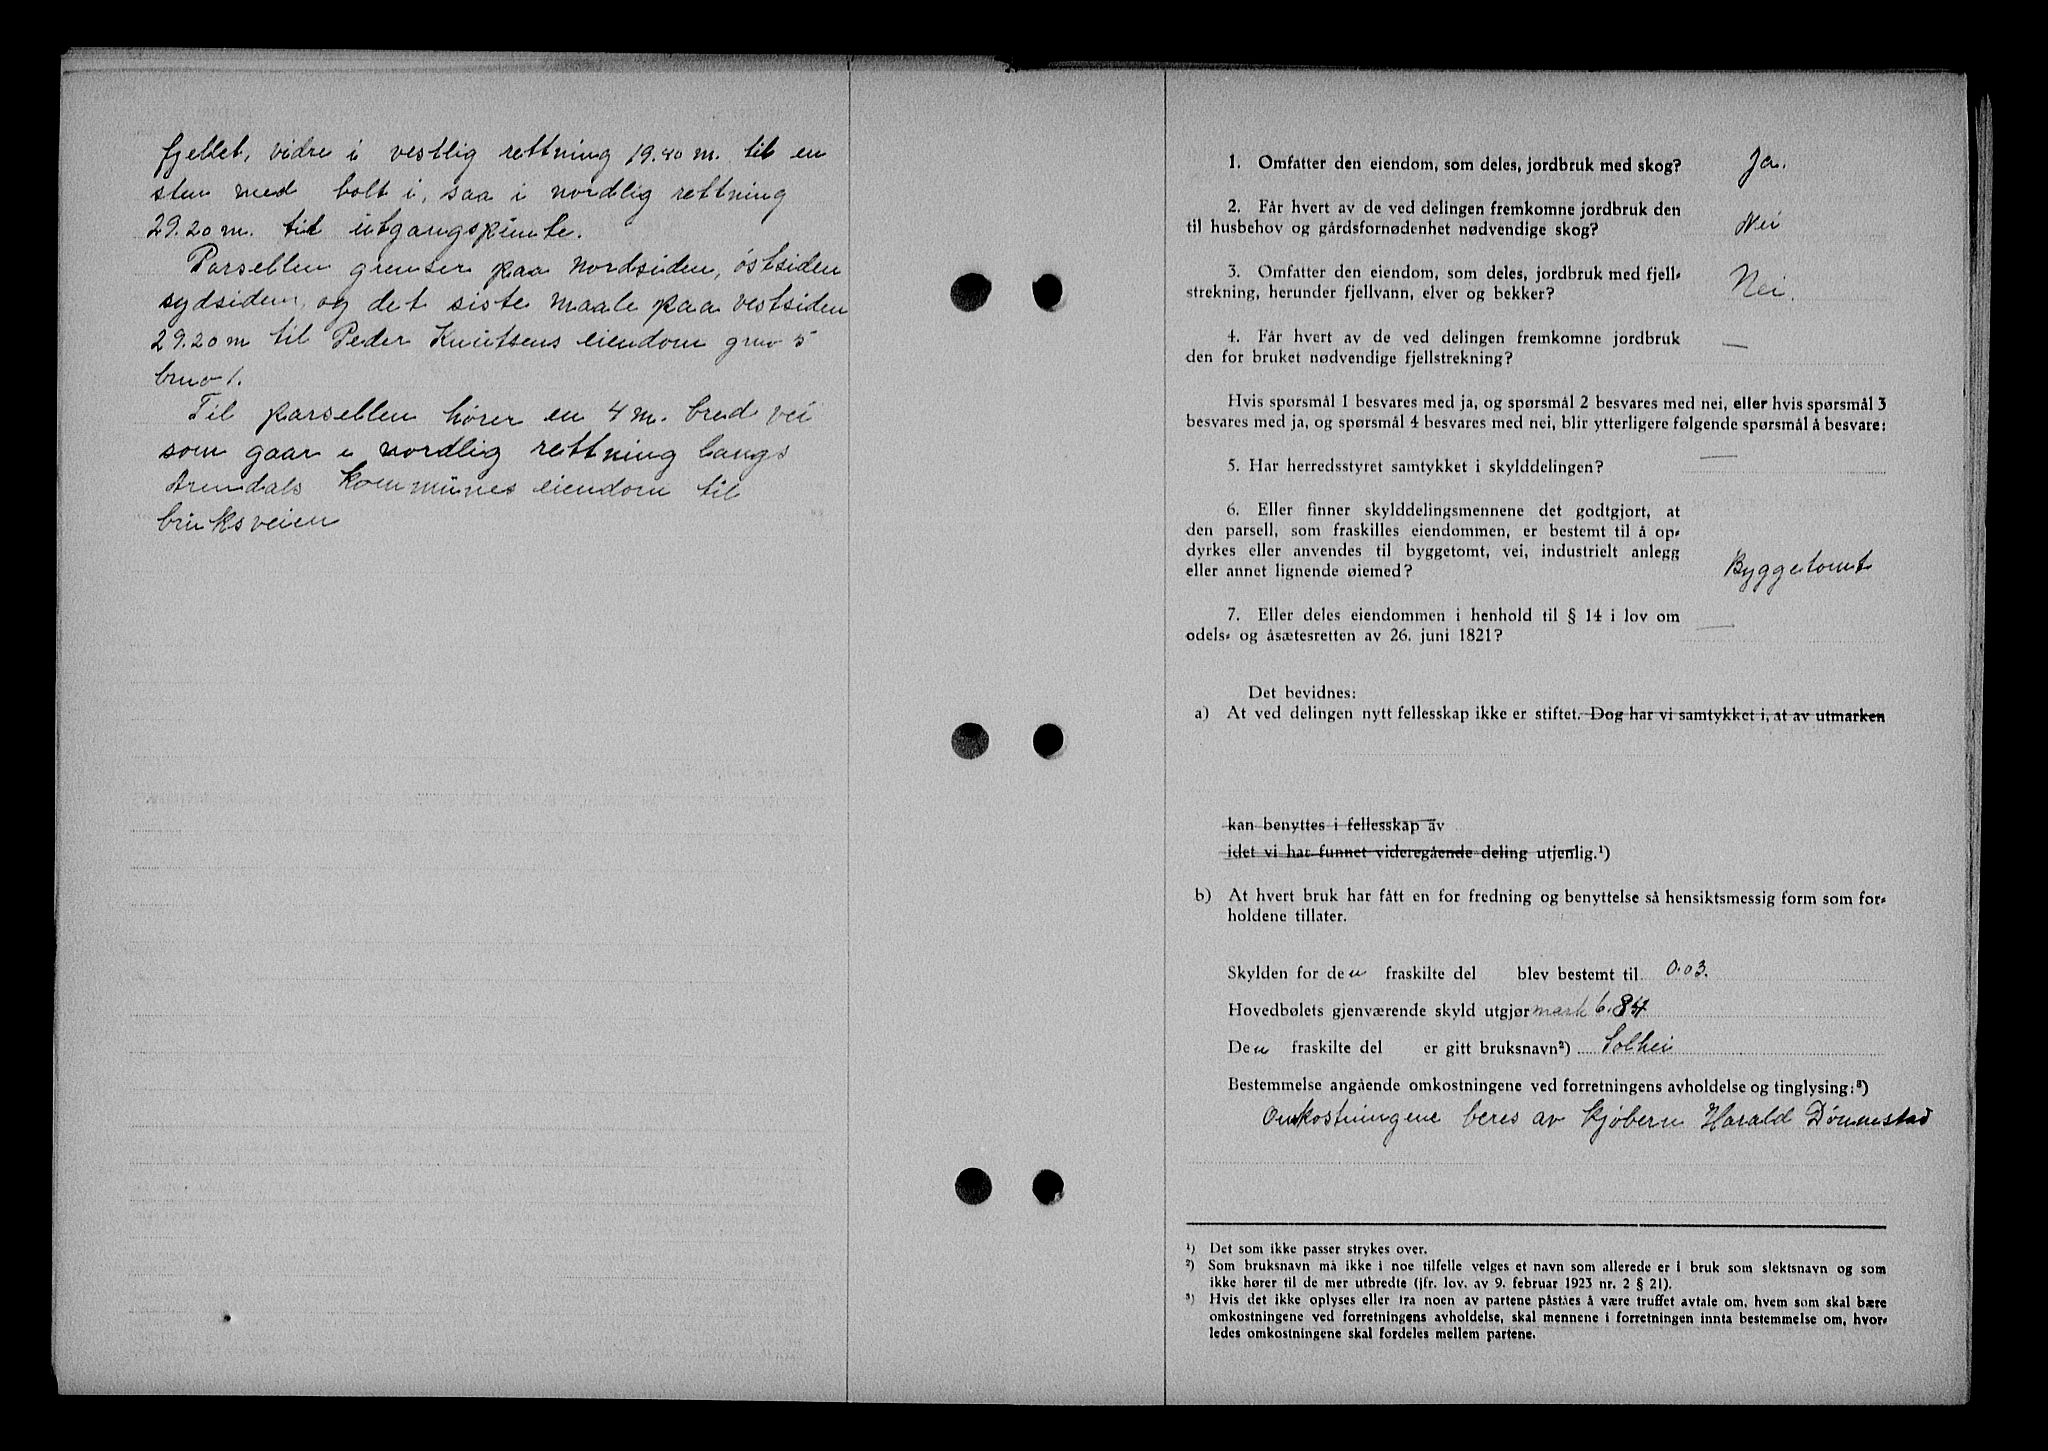 fjellet, vidre i vestlig rettning 19.40 m. til en
sten med bolt i, saa i nordlig rettning
29.20 m. til utgangspunte.
Parsellen grenser paa nordsiden, østsiden
sydsiden, og det siste maale paa vestsiden
29.20 m til Peder Knutsens eiendom gno 5
bno 1.
Til parsellen hører en 4 m. bred vei
som gaar i nordlig rettning langs
Arendals Kommunes eiendom til
bruksveien
1. Omfatter den eiendom, som deles, jordbruk med skog? Ja.
2. Får hvert av de ved delingen fremkomne jordbruk den
til husbehov og gårdsfornødenhet nødvendige skog? Nei
3. Omfatter den eiendom, som deles, jordbruk med fjell-
strekning, herunder fjellvann, elver og bekker? Nei.
4. Får hvert av de ved delingen fremkomne jordbruk
den for bruket nødvendige fjellstrekning? —
Hvis spørsmål 1 besvares med ja, og spørsmål 2 besvares med nei, eller hvis spørsmål 3
besvares med ja, og spørsmål 4 besvares med nei, blir ytterligere følgende spørsmål å besvare:
5. Har herredsstyret samtykket i skylddelingen? —
6. Eller finner skylddelingsmennene det godtgjort, at
den parsell, som fraskilles eiendommen, er bestemt til å op-
dyrkes eller anvendes til byggetomt, vei, industrielt anlegg
eller annet lignende øiemed? Byggetomt
7. Eller deles eiendommen i henhold til § 14 i lov om
odels- og åsætesretten av 26. juni 1821? —
Det bevidnes:
a) At ved delingen nytt fellesskap ikke er stiftet. Dog har vi samtykket i, at av utmarken
kan benyttes i fellesskap av
idet vi har funnet videregående deling utjenlig.¹)
b) At hvert bruk har fått en for fredning og benyttelse så hensiktsmessig form som for-
holdene tillater.
Skylden for den fraskilte del blev bestemt til 0.03.
Hovedbølets gjenværende skyld utgjør mark 6.84
Den fraskilte del er gitt bruksnavn²) Solhei
Bestemmelse angående omkostningene ved forretningens avholdelse og tinglysing:³)
Omkostningene beres av kjøbern Harald Dønnestad
¹) Det som ikke passer strykes over.
²) Som bruksnavn må ikke i noe tilfelle velges et navn som allerede er i bruk som slektsnavn og som
ikke hører til de mer utbredte (jfr. lov. av 9. februar 1923 nr. 2 § 21).
³) Hvis det ikke oplyses eller fra noen av partene påståes å være truffet avtale om, hvem som skal bære
omkostningene ved forretningens avholdelse, skal mennene i forretningen innta bestemmelse om, hvor-
ledes omkostningene skal fordeles mellem partene.